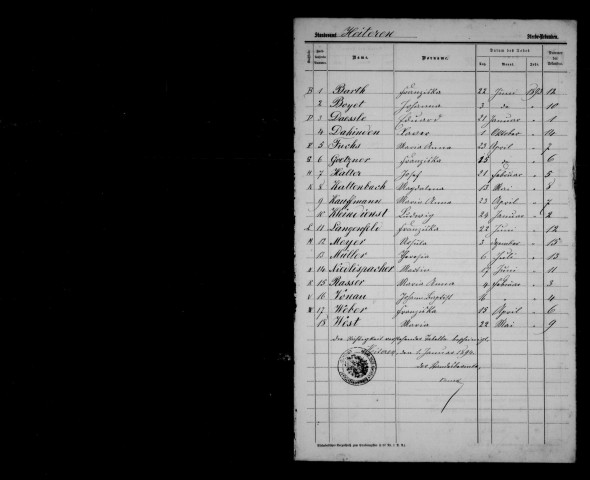 Standesamt Heiteren Sterbe-Urkunden.
Name. Vorname. Datum des Todes
Tag. Monat. Jahr.
B 1 Barth Franziska 22 Juni 1893 12
2 Boyet Johanna 3 do 10
D 3 Daessle Eduard 21 Januar 1
4 Dahinden Xaver 1 Oktober 14
F 5 Fuchs Maria Anna 23 April 7
G 6 Goetzner Franziska 15 do 6
H 7 Halter Josef 21 Februar 5
K 8 Kaltenbach Magdalena 13 Mai 8
9 Kauffmann Maria Anna 23 April 7
10 Kleindienst Ludwig 24 Januar 2
L 11 Langenfeld Franziska 22 Juni 12
M 12 Meyer 3 15
13 Müller Theresia 6 Juli 13
N 14 Nicolispacher Martin 17 Juni 11
R 15 Rasser Maria Anna 4 Februar 3
V 16 Vonau Johann Baptist 4
W 17 Weber Franziska 13 April 6
18 Wist Maria 22 Mai 9
Die Richtigkeit vorstehender Tabelle bescheinigt
Heiteren, den 1. Januar 1894.
der Standesbeamte,